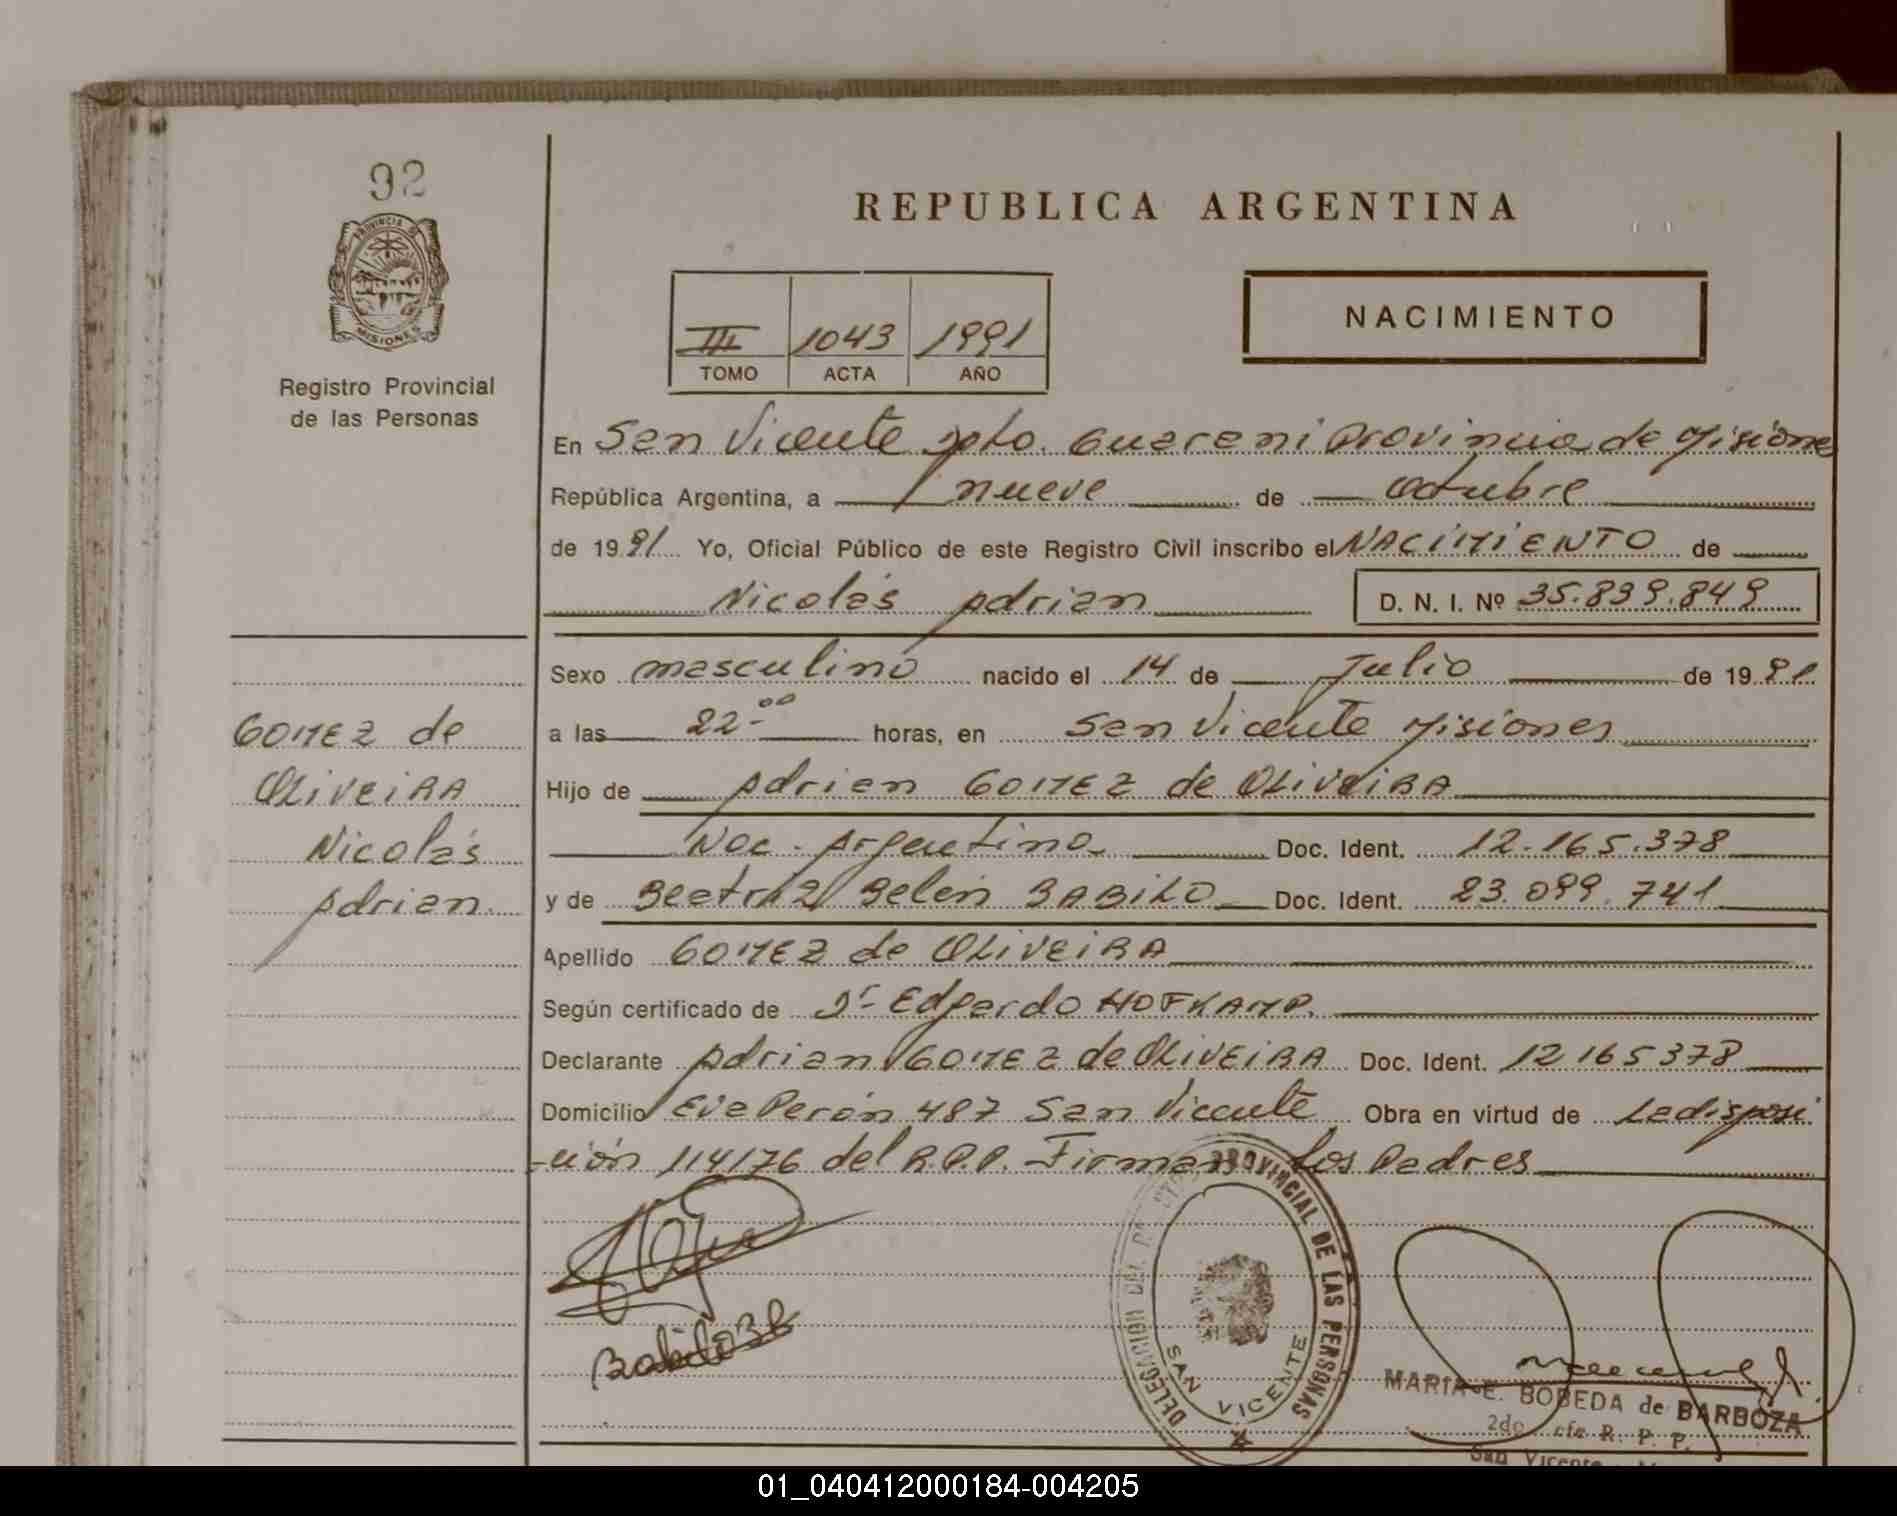 92
PROVINCIA DE
MISIONES
Registro Provincial
de las Personas
REPUBLICA ARGENTINA
III 1043 1991
TOMO ACTA AÑO
NACIMIENTO
En San Vicente Dpto. Guarani Provincia de Misiones
República Argentina, a nueve de octubre
de 19 91 Yo, Oficial Público de este Registro Civil inscribo el NACIMIENTO de
Nicolás Adrian D. N. I. Nº 35.839.849
Sexo masculino nacido el 14 de Julio de 19 91
a las 22-00 horas, en San Vicente Misiones
Hijo de Adrian GOMEZ de OLIVEIRA
Nac. Argentino Doc. Ident. 12.165.378
y de Beatriz Belén BABILO Doc. Ident. 23.099.741
Apellido GOMEZ de OLIVEIRA
Según certificado de Dr Edgardo HOFKAMP.
Declarante Adrian GOMEZ de OLIVEIRA Doc. Ident. 12165378
Domicilio Eva Perón 487 San Vicente Obra en virtud de La disposi
-ción 114176 del R.P.P. Firman Los Padres
GOMEZ de
OLIVEIRA
Nicolás
Adrian.
Babilo BB
DELEGACION DEL PROVINCIAL DE LAS PERSONAS
SAN VICENTE
MARIA E. BOBEDA de BARBOZA
R. P. P.
San Vicente
01_040412000184-004205